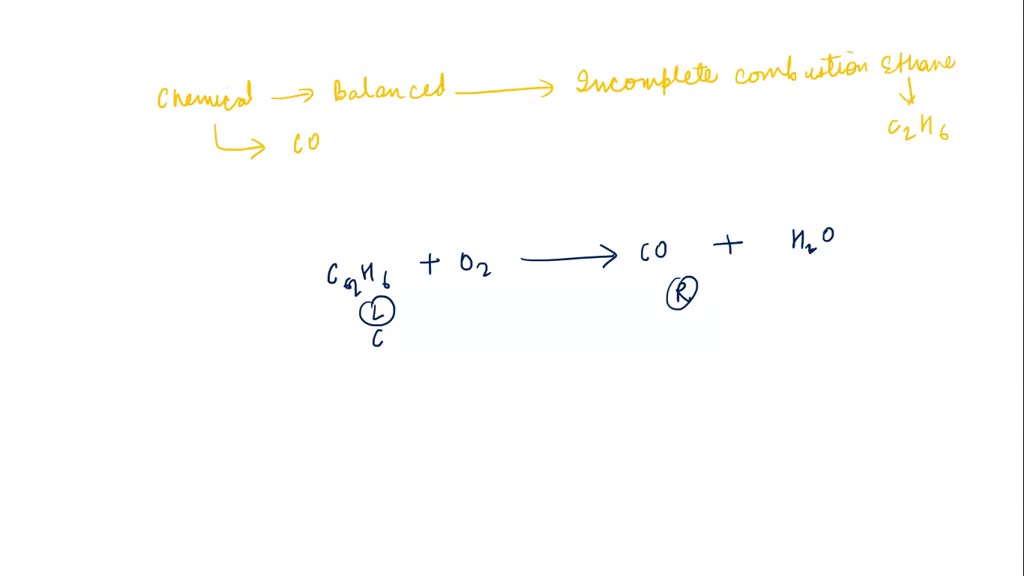 Chemical → Balanced → Incomplete combustion Ethane
↳ CO
↓
C₂H₆
C₂H₆ + O₂ → CO + H₂O
L R
C